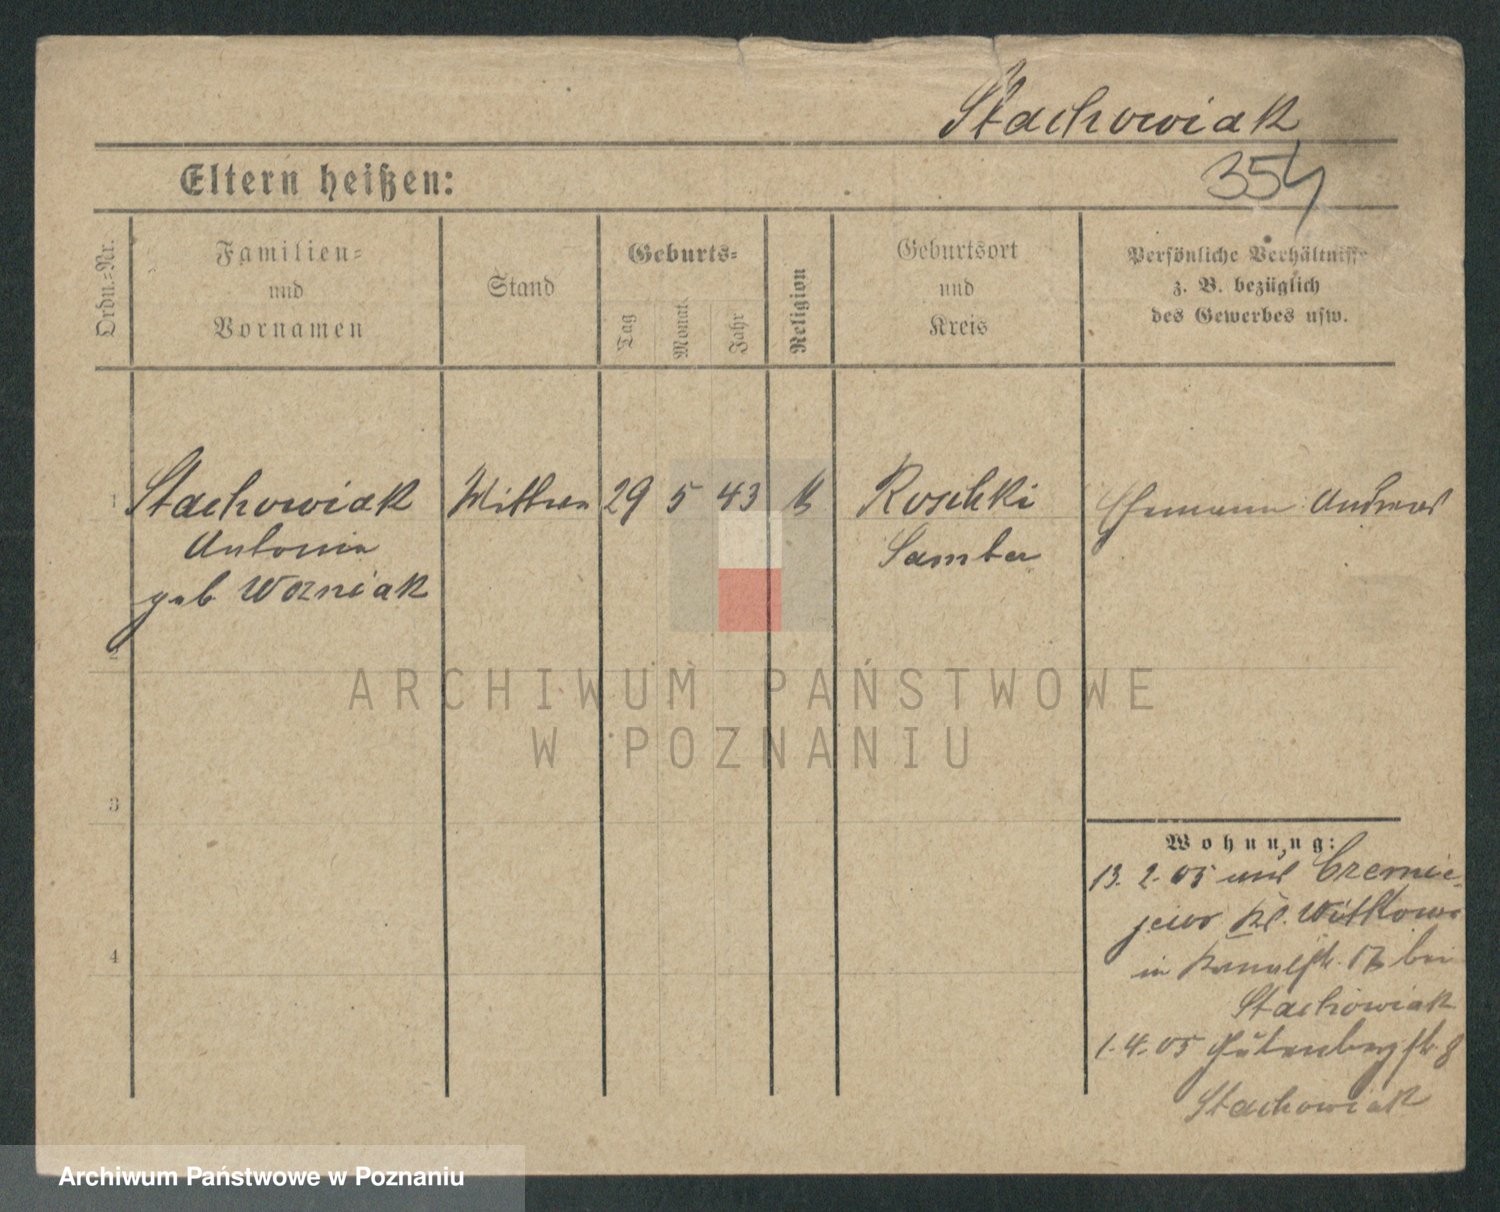 Stachowiak
354
Eltern heißen:
Ordn.-Nr.
Familien-
und
Vornamen
Stand
Geburts-
Tag
Monat
Jahr
Religion
Geburtsort
und
Kreis
Persönliche Verhältnisse
z. B. bezüglich
des Gewerbes usw.
1 Stachowiak Wittwe 29 5 43 Roschki Ehemann Andreas
Antonie Samter
geb Wozniak
2
ARCHIWUM PAŃSTWOWE
W POZNANIU
3
4
Wohnung:
13. 2. 05 aus Czernie-
jewo Kr. Witkowo
in Kanalstr. 17 bei
Stachowiak
1. 4. 05 Gutenbergstr. 8
Stachowiak
Archiwum Państwowe w Poznaniu